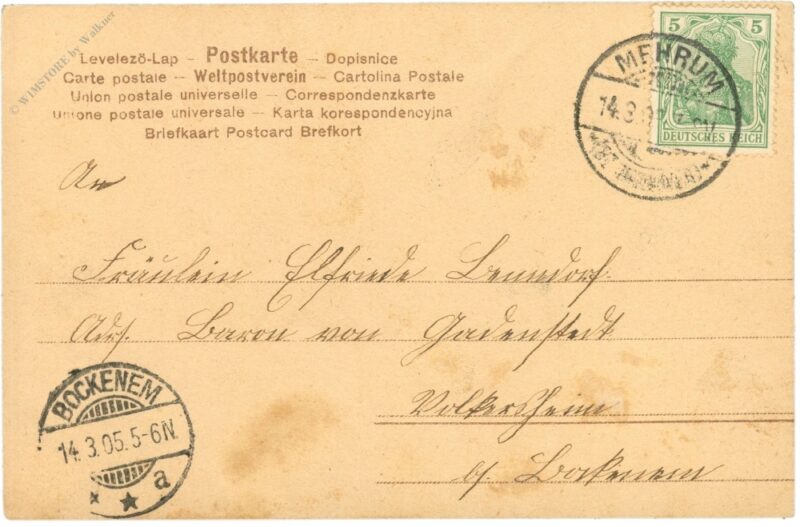 © WIMSTORE by Walkner
Levelező-Lap – Postkarte – Dopisnice
Carte postale – Weltpostverein – Cartolina Postale
Union postale universelle – Correspondenzkarte
Unione postale universale – Karta korespondencyjna
Briefkaart Postcard Brefkort
5 5
DEUTSCHES REICH
MEHRUM
14.3.
An
Fräulein Elfriede Benndorf.
Adr. Baron von Gadenstedt
Volkersheim
b/ Bockenem
BOCKENEM
14.3.05.5-6N.
* * a